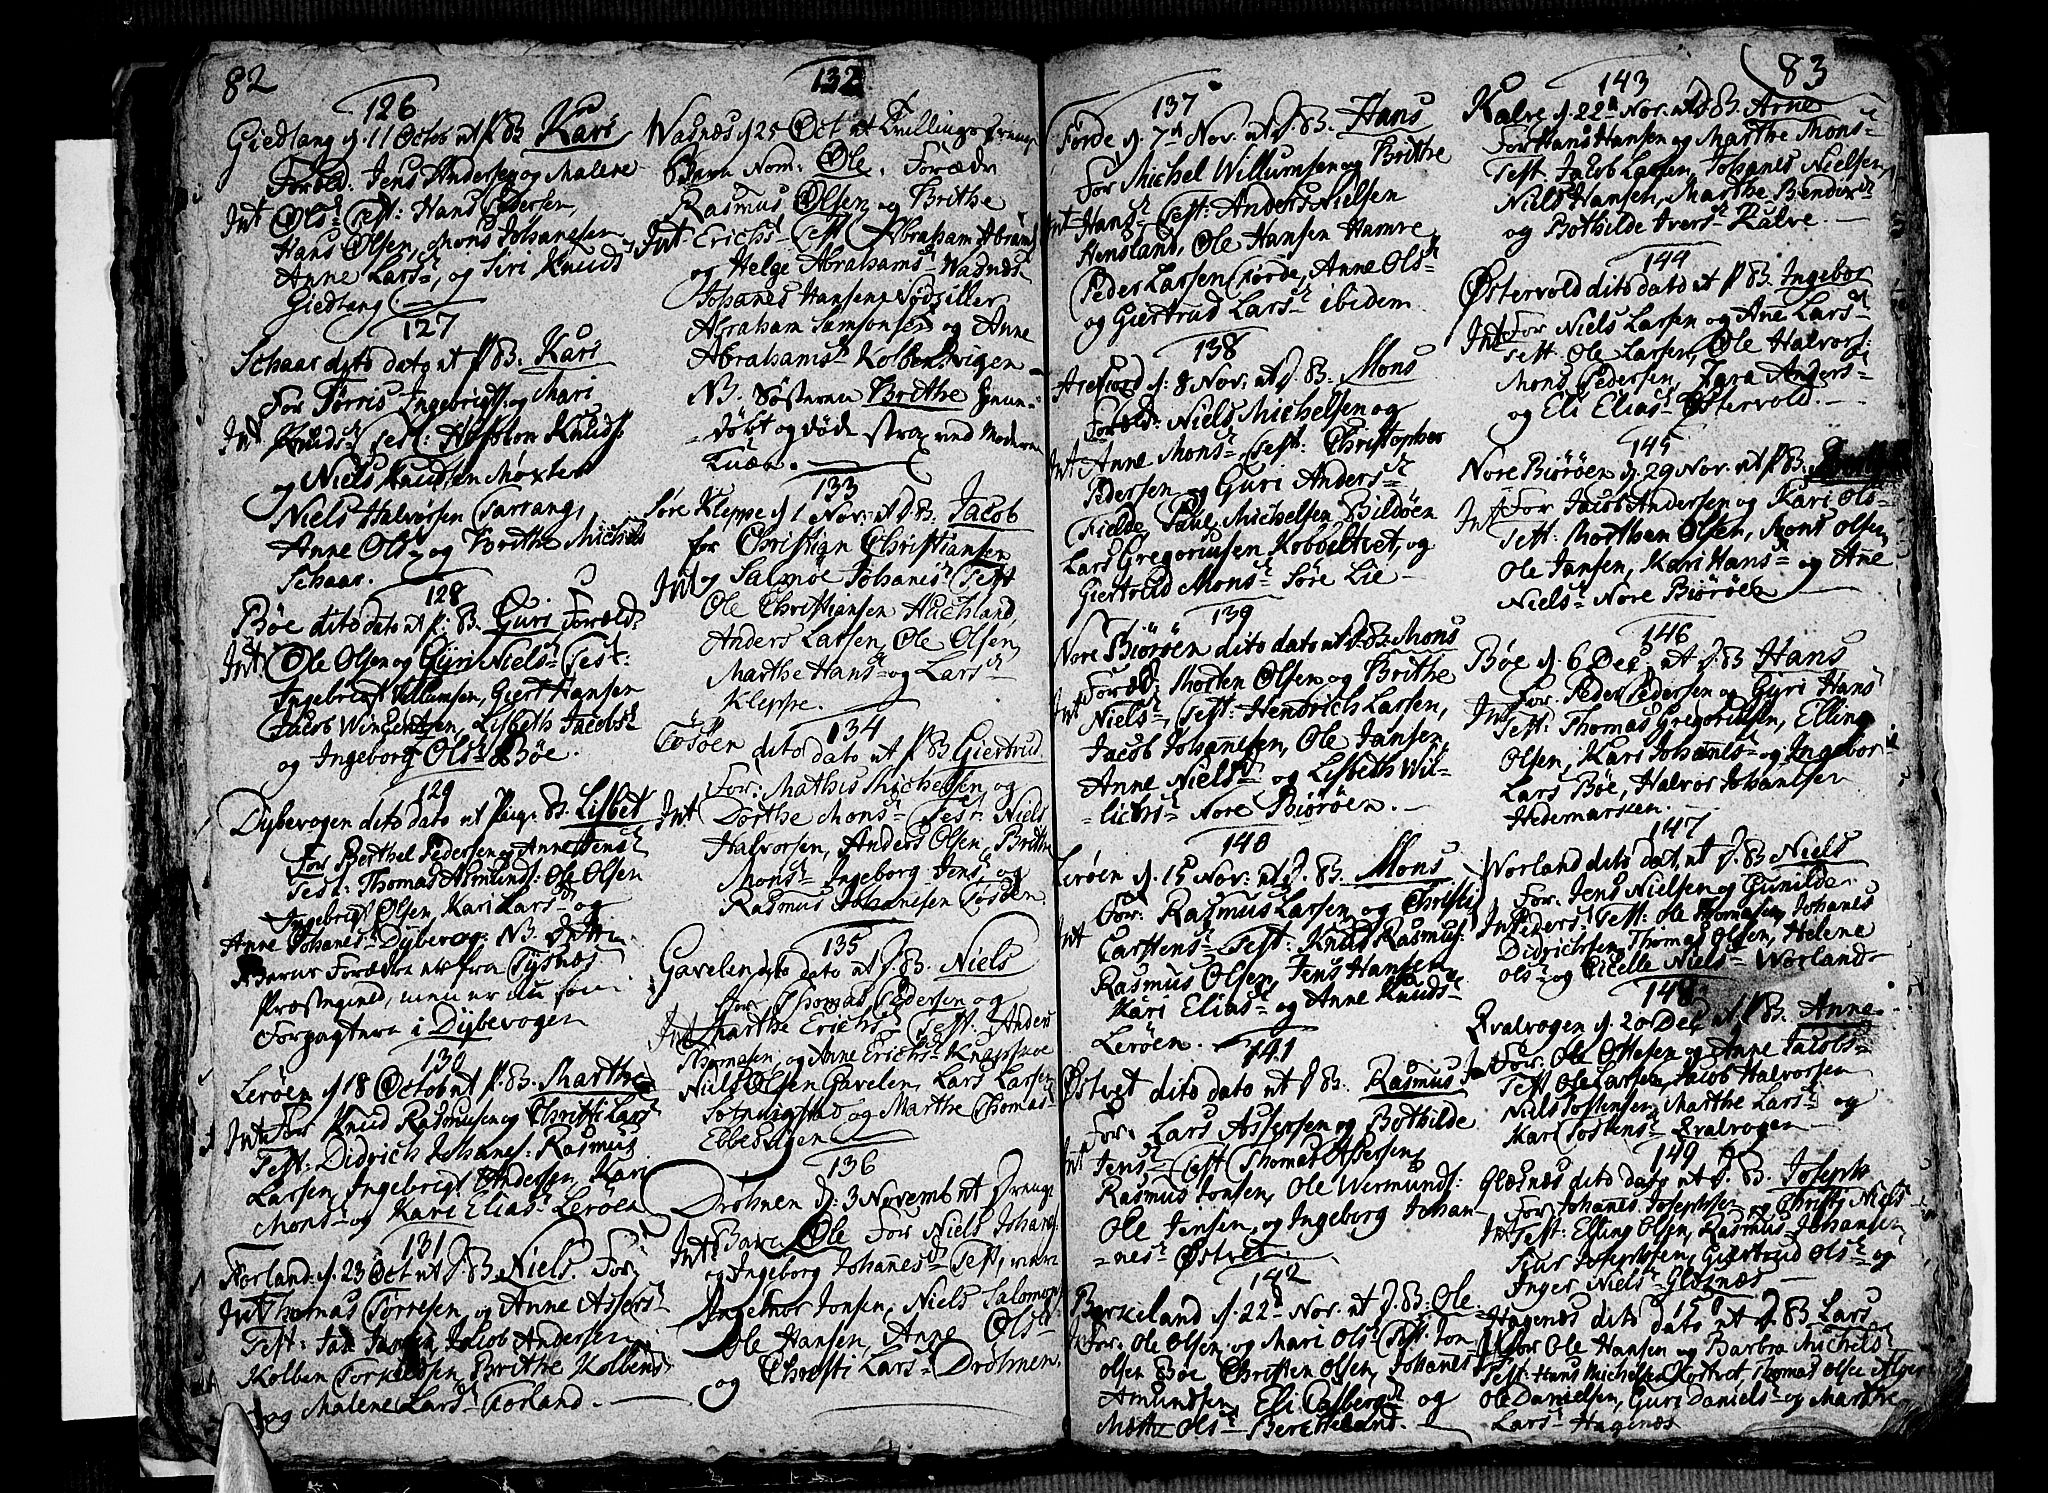 82
126
Giedtang d. 11 Octob nt P. B. Kari
Foreld. Jens Andersen og Malene
Int Ols. Test: Hans Pedersen,
Hans Olsen, Mons Johanesen
Anne Lars, og Siri Knuds
Giedtang.
127
Schaar dito dato nt P. B. Kari
For Torris Ingebrigts. og Mari
Int Knuds. Test: Knuds.
og Niels Knudsen Moxter
Niels Halvorsen Tarrang,
Anne Ols. og Brithe Michels
Schaar.
128
Bøe dito dato nt P. B. Guri Foreld.
Int Ole Olsen og Gyri Niels. Test:
Ingebrigt Villumsen, Giert Hansen
Jacob Wincentsen, Lisbeth Jacobs.
og Ingeborg Ols. Bøe.
129
Dybevogen dito dato nt Pige B. Lisbet
For Berthel Pedersen og Anne Jens.
Test: Thomas Asmund: Ole Olsen
Ingebrigt Olsen, Kari Lars. og
Anne Johanes. Dybevog: NB. dette
Barns Forældre ere fra Tysnes
Præstegield, men er nu som
Forpagtere i Dybevogen
130
Lerøen d. 18 Octob nt P. B. Marthe
Int For Knud Rasmusen og Christi Lars.
Test: Didrich Johanes: Rasmus
Larsen, Ingebrigt Andersen, Kari
Mons. og Kari Elias. Lerøen
131
Torland: d. 23 Oct nt D. B. Niels. For:
Int Thomas Torresen, og Anne Assers.
Test: Jansen, Jacob Andersen
Kolben Torkildsen, Brithe Kolbens.
og Malene Lars. Torland.
132
Wadnæs d. 25 Oct nt Tvillings Drenge
Barn Nom: Ole. Forældr
Rasmus Olsen og Brithe
Int Erichs. Test Abraham Abrams
og Helge Abrahams. Wadnæs
Johanes Hansen Nodsiller
Abraham Samsonsen og Anne
Abrahams. Kolbensvigen
NB. Søsteren Brithe Hjemme-
døbt og døde strax ved Moderens
Knæe.
133
Søre Kleppe d. 1 Nov: nt D. B: Jacob
for Christian Christiansen
Int og Salmøe Johanis. Test
Ole Christiansen Huchland,
Anders Larsen, Ole Olsen,
Marthe Hans. og Lars.
Kleppe.
134
Tøsøen dito dato nt P. B. Giertrud
For: Mathis Michelsen og
Int Dorthe Mons. Test: Niels
Halvorsen, Anders Olsen, Brithe
Mons. Ingeborg Jens. og
Rasmus Johanesen Tøsøen.
135
Gavelen dito dato nt D. B. Niels
for Thomas Pedersen og
Int Marthe Erichs. Test: Anders
Thomasen, og Anne Erichs. Knappsoe
Niels Olsen Gavelen, Lars Larsen
og Marthe Thomas.
Ebbesvigen
136
Drøhnen d. 3 Novemb nt Drenge
Barn Ole For Niels Johans
Int og Ingeborg Johanes. Test, vare
Ingelnor Jonsen, Niels Salomons.
Ole Hansen, Anne Ols.
og Christi Lars. Drøhnen
137
Førde d. 7d Nov. nt D. B. Hans
For Michel Willumsen og Brithe
Int Hans. Test: Anders Nielsen
Hensland, Ole Hansen Hamre,
Peder Larsen Førde, Anne Ols.
og Giertrud Lars. ibidem.
138
Arefiord d: 8 Nov: nt D. B. Mons
Foreld: Niels Michelsen og
Int Anne Mons. Test: Christopher
Pedersen og Guri Anders.
Fielde, Paul Michelsen Bildøen
Lars Gregoriusen Kobbeltvet, og
Giertrud Mons. Søre Lie
139
Nore Biørøen dito dato nt D. B. Mons
Foræld: Morten Olsen og Brithe
Int Niels. Test: Hendrich Larsen,
Jacob Johannesen, Ole Jansen
Anne Niels. og Lisbeth Wil-
lichs. Nore Biørøen.
140
Lerøen d. 15 Nov: nt D. B. Mons
For: Rasmus Larsen og Christi
Int Carstens. Test: Knud Rasmus:
Rasmus Olsen, Jens Hansen
Kari Elias. og Anne Knuds.
Lerøen.
141
Østvet dito dato nt D. B. Rasmus
For: Lars Assersen og Bothilde
Int Jens. Test Thomas Assersen
Rasmus Jonsen, Ole Wermunds:
Ole Jensen, og Ingeborg Johan-
nes. Østvet
142
Berkeland d. 22d Nov. nt D. B: Ole
Int For: Ole Olsen og Mari Ols. Test: Jon
Olsen Bøe Christen Olsen, Johannes
Amundsen, Eli Casbergs. og
Ols. Berkeland.
83
143
Kalve d. 22d Nov. nt D. B. Arne
For Hans Hansen og Marthe Mons.
Test. Jacob Larsen, Johanes Nielsen,
Niels Hansen, Marthe Bendix.
og Bothilde Ivers. Kalve.
144
Østervold dito dato nt P. B. Ingebor
Int For Niels Larsen og Ane Lars.
Test: Ole Larsen, Ole Halvors:
Mons Pedersen, Anders.
og Eli Elias. Østervold.
145
Nore Biørøen d. 29 Nov. nt P. B.
Int For Jacob Andersen og Kari Ols.
Test: Morthen Olsen, Mons Olsen
Ole Jansen, Kari Hans. og Ane
Niels. Nore Biørøen
146
Bøe d. 6 Dec. nt D. B. Hans
For: Peder Pedersen og Gyri Hans.
Int Test: Thomas Gregoriusen, Elling
Olsen, Kari Johannes. og Ingebor
Lars Bøe, Halvor Johannesen
Hedemarken.
147
Worland dito dat. nt D. B. Niels
For: Jens Nielsen og Gunilde
Int Peders. Test: Ole Thomasen, Johanes
Didrichsen, Thomas Olsen, Helene
Ols. og Cicelle Niels. Worland
148
Qvalvogen d. 20 Dec nt P. B. Anne
Int For: Ole Ottesen og Anne Jacobs.
Test Ole Larsen, Jacob Halvorsen
Niels Tostensen, Marthe Lars. og
Kari Tostens. Qvalvogen
149
Glæsnæs dito dato nt D. B. Joseph
For Johanes Josephsen og Christi Niels.
Int Test: Elling Olsen, Rasmus Johansen
Siur Josephsen, Giertrud Ols. og
Inger Niels. Glæsnæs
150
Hagenæs dito dato nt D. B. Lars
for Ole Hansen og Barbra Michels.
Test: Hans Michelsen Kortvet, Thomas Olsen
Ole Danielsen, Guri Daniels. og Marthe
Lars. Hagenæs